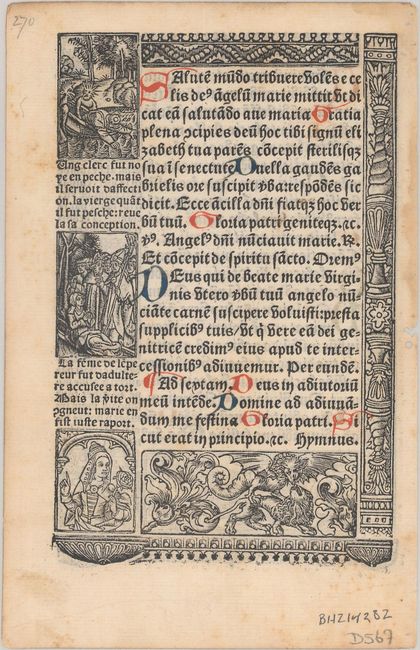 270
Salutē mūdo tribuere volēs e ce
lis de⁹ āgelū marie mittit vt di
cat eā salutādo aue maria Gratia
plena ↄcipies deū hoc tibi signū eli
zabeth tua parēs cōcepit sterilisqꝫ
sua ī senectute Puella gaudēs ga
brielis ore suscipit ꝟba: respōdēs sic
dicit. Ecce ācilla dn̄i fiatqꝫ hoc ver
bū tuū. Gloria patri geniteqꝫ. ⁊c.
℣. Angel⁹ dn̄i nūciauit marie. ℟.
Et cōcepit de spiritu sācto. Orem⁹
Deus qui de beate marie virgi
nis vtero ꝟbū tuū angelo nū-
ciāte carnē suscipere voluisti: presta
supplicib⁹ tuis/ vt q̄ vere eā dei ge-
nitricē credim⁹ eius apud te inter-
cessionib⁹ adiuuemur. Per eundē.
¶ Ad septam. Deus in adiutoriū
meū intēde. Domine ad adiuuā-
dum me festina Gloria patri. Si
cut erat in principio. ⁊c. Hymnus.
Ung clerc fut no
ye en peche. mais
il seruoit daffecti
on. la vierge quāt
il fut pesche: reue
la sa conception.
La fēme de lēpe
reur fut dadultе-
re accusee a tort.
Mais la ꝟite on
ↄgneut: marie en
fist iuste raport.
BH214282
D567